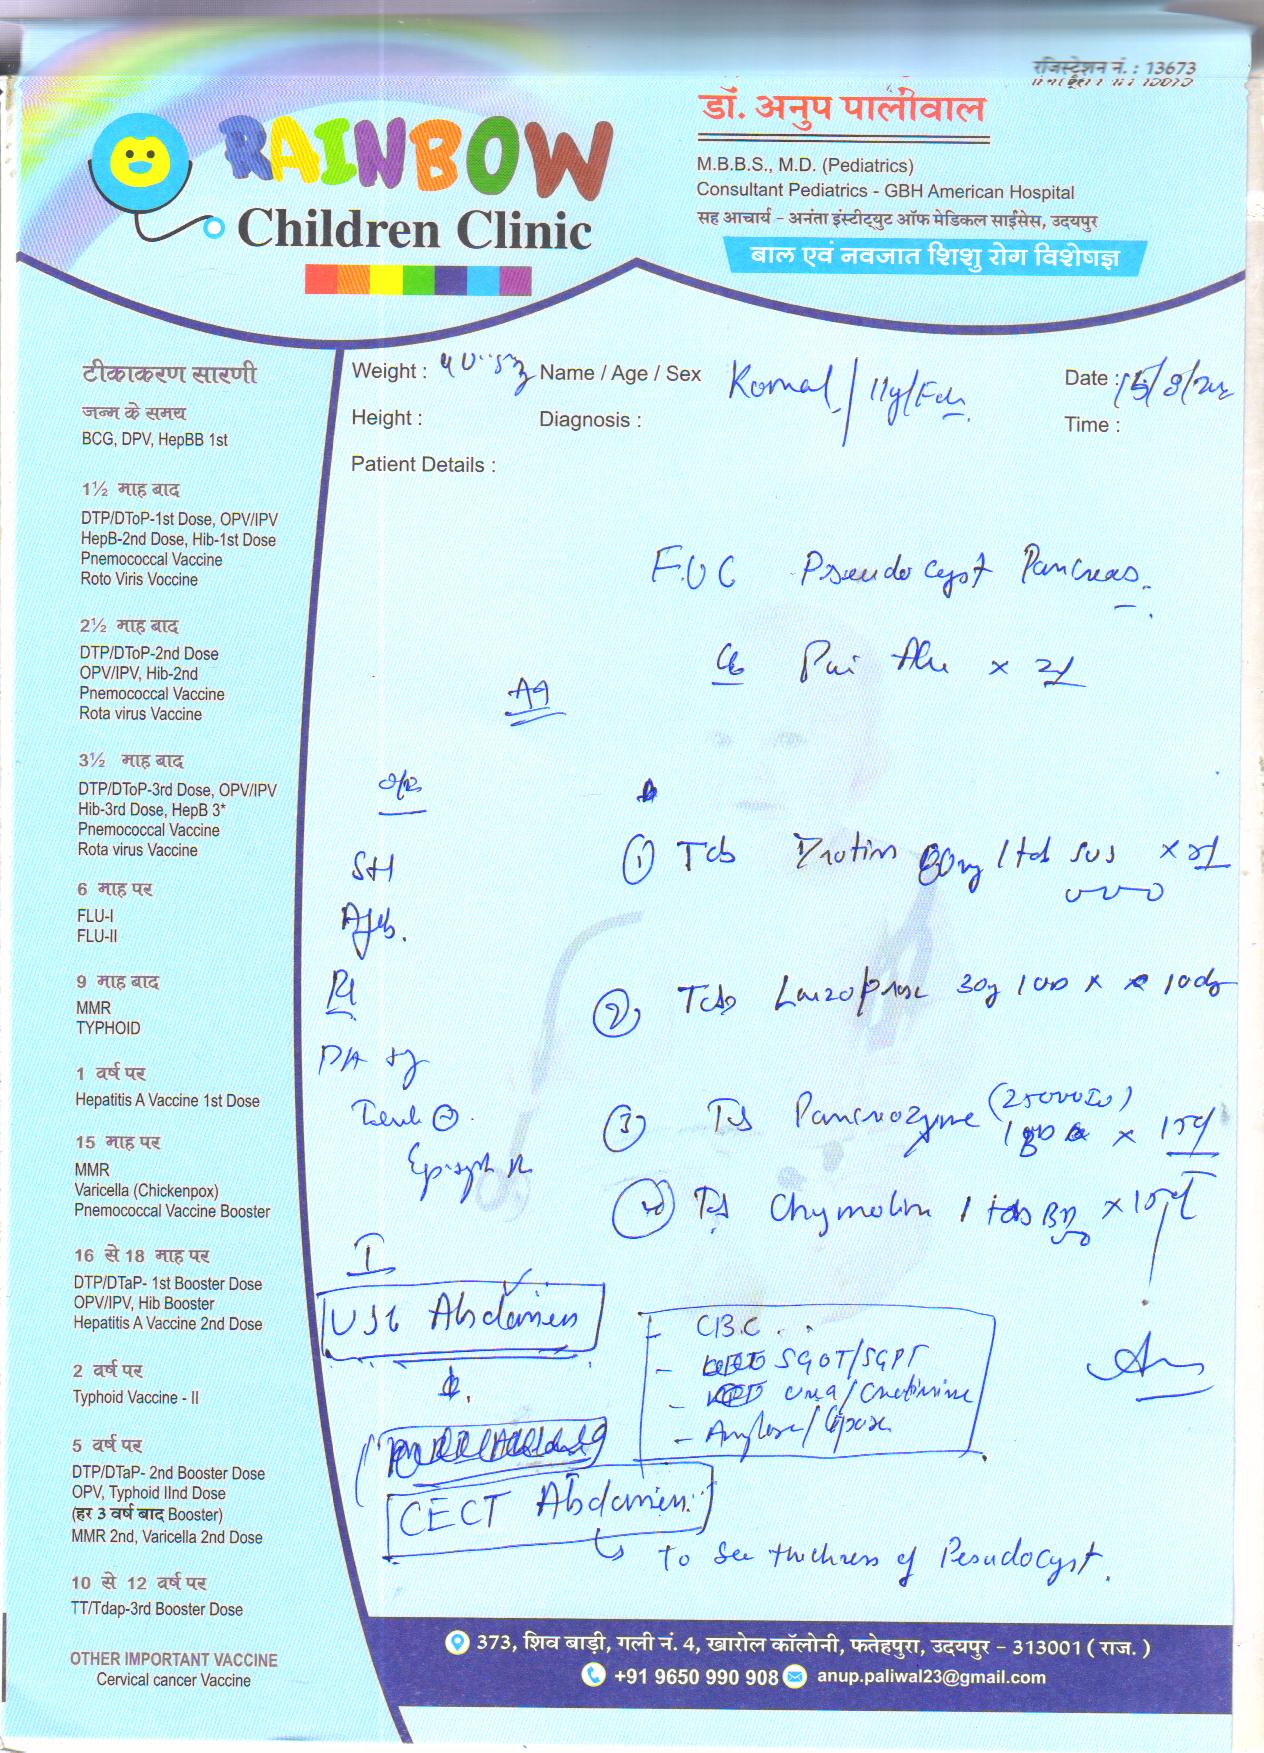 रजिस्ट्रेशन नं. : 13673
डॉ. अनुप पालीवाल
RAINBOW
Children Clinic
M.B.B.S., M.D. (Pediatrics)
Consultant Pediatrics - GBH American Hospital
सह आचार्य - अनंता इंस्टीट्युट ऑफ मेडिकल साईंसेस, उदयपुर
बाल एवं नवजात शिशु रोग विशेषज्ञ
Weight : Name / Age / Sex Komal / 11y/Fch Date : 15/8/
Height : Diagnosis : Time :
Patient Details :
टीकाकरण सारणी
जन्म के समय
BCG, DPV, HepBB 1st
1½ माह बाद
DTP/DToP-1st Dose, OPV/IPV
HepB-2nd Dose, Hib-1st Dose
Pnemococcal Vaccine
Roto Viris Voccine
2½ माह बाद
DTP/DToP-2nd Dose
OPV/IPV, Hib-2nd
Pnemococcal Vaccine
Rota virus Vaccine
3½ माह बाद
DTP/DToP-3rd Dose, OPV/IPV
Hib-3rd Dose, HepB 3*
Pnemococcal Vaccine
Rota virus Vaccine
6 माह पर
FLU-I
FLU-II
9 माह बाद
MMR
TYPHOID
1 वर्ष पर
Hepatitis A Vaccine 1st Dose
15 माह पर
MMR
Varicella (Chickenpox)
Pnemococcal Vaccine Booster
16 से 18 माह पर
DTP/DTaP- 1st Booster Dose
OPV/IPV, Hib Booster
Hepatitis A Vaccine 2nd Dose
2 वर्ष पर
Typhoid Vaccine - II
5 वर्ष पर
DTP/DTaP- 2nd Booster Dose
OPV, Typhoid IInd Dose
(हर 3 वर्ष बाद Booster)
MMR 2nd, Varicella 2nd Dose
10 से 12 वर्ष पर
TT/Tdap-3rd Booster Dose
OTHER IMPORTANT VACCINE
Cervical cancer Vaccine
F.U.C Pseudocyst Pancreas.
O/E
Afeb.
P/A
① Tab Drotin 80mg 1 tds SOS
② Tab 30mg 1 OD x 10 days
③ Pancreozyme (25000 IU)
④ Chymolin 1 tds
USG Abdomen
CBC
- SGOT/SGPT
- Urea/Creatinine
- Amylase/Lipase
CECT Abdomen
To See thickness of Pesudocyst.
373, शिव बाड़ी, गली नं. 4, खारोल कॉलोनी, फतेहपुरा, उदयपुर - 313001 ( राज. )
+91 9650 990 908 anup.paliwal23@gmail.com